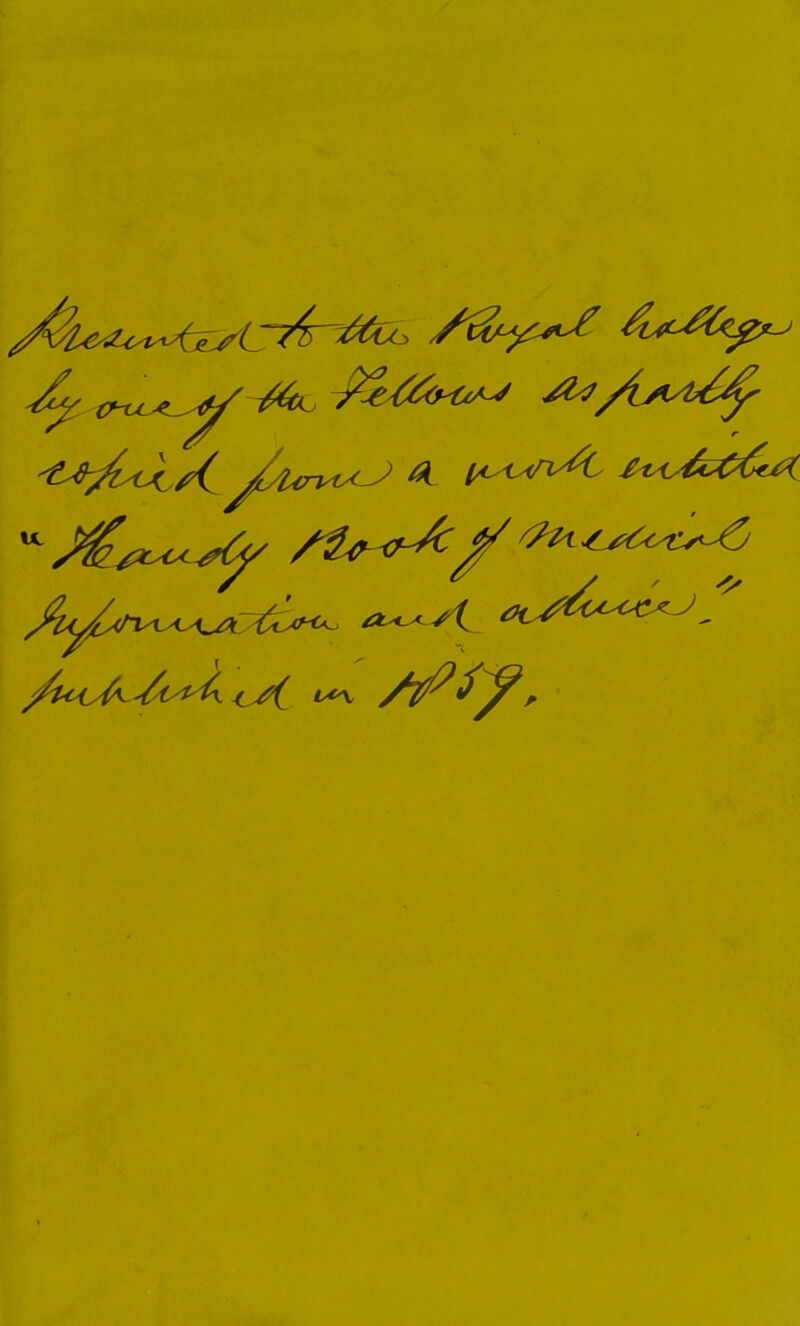 Presented to the Royal College
by one of the Fellows As partly
copied from a work entitled
"Handy Book of Medical
Information and advice."
published in 1859.